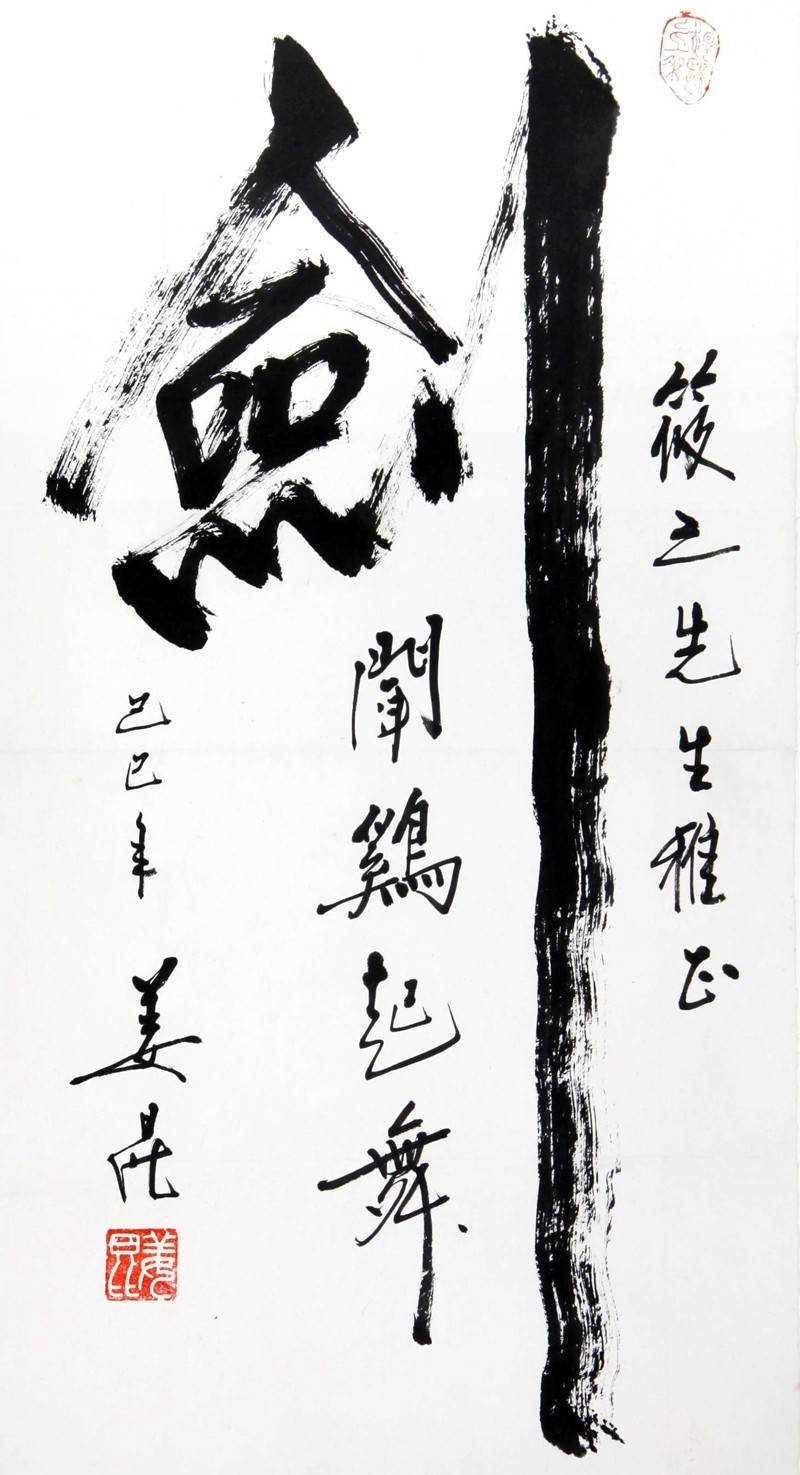 筱之先生雅正
劍
聞鷄起舞
己巳年
姜昆
姜昆